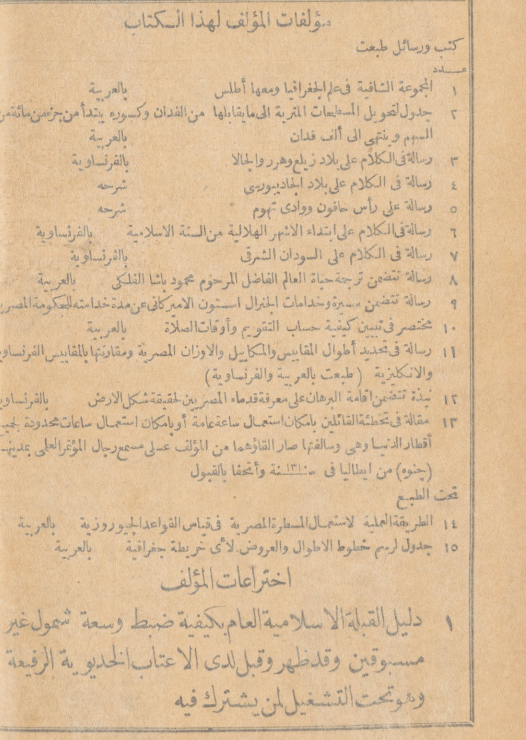 مؤلفات المؤلف لهذا الكتاب
كتب ورسائل طبعت
عدد
١ المجموعة الشافية فى علم الجغرافيا ومعها أطلس بالعربية
٢ جدول لتحويل المسطحات المترية الى ما يقابلها من الفدان وكسوره يبتدأ من جزء من مائة من
السهم وينتهى الى ألف فدان بالعربية
٣ رسالة فى الكلام على بلاد زيلع وهرر والجالا بالفرنساوية
٤ رسالة فى الكلام على بلاد الجاديبورسى شرحه
٥ رسالة على رأس حافون ووادى تهوم شرحه
٦ رسالة فى الكلام على ابتداء الاشهر الهلالية من السنة الاسلامية بالفرنساوية
٧ رسالة فى الكلام على السودان الشرقى بالفرنساوية
٨ رسالة تتضمن ترجمة حياة العالم الفاضل المرحوم محمود باشا الفلكى بالعربية
٩ رسالة تتضمن سيرة وخدامات الجنرال استون الامريكانى عن مدة خدامته للحكومة المصرية
١٠ مختصر فى تبيين كيفية حساب التقويم وأوقات الصلاة بالعربية
١١ رسالة فى تحديد أطوال المقاييس والمكاييل والاوزان المصرية ومقارنتها بالمقاييس الفرنساوية
والانكليزية (طبعت بالعربية والفرنساوية)
١٢ نبذة تتضمن اقامة البرهان على معرفة قدماء المصريين لحقيقة شكل الارض بالفرنساوية
١٣ مقالة فى تخطئة القائلين بامكان استعمال ساعة عامة أو بامكان استعمال ساعات محدودة لجميع
أقطار الدنيا وهى وسالفتها صار القاؤهما من المؤلف على مسمع رجال المؤتمر العلمى بمدينة
(جنوه) من ايطاليا فى سنة وأتحفا بالقبول
تحت الطبع
١٤ الطريقة العملية لاستعمال المسطرة المصرية فى قياس القواعد الجيوروزية بالعربية
١٥ جدول لرسم خطوط الاطوال والعروض لأى خريطة جغرافية بالعربية
اختراعات المؤلف
١ دليل القبلة الاسلامية العام بكيفية ضبط وسعة شمول غير
مسبوقين وقد ظهر وقبل لدى الاعتاب الخديوية الرفيعة
وهو تحت التشغيل لمن يشترك فيه